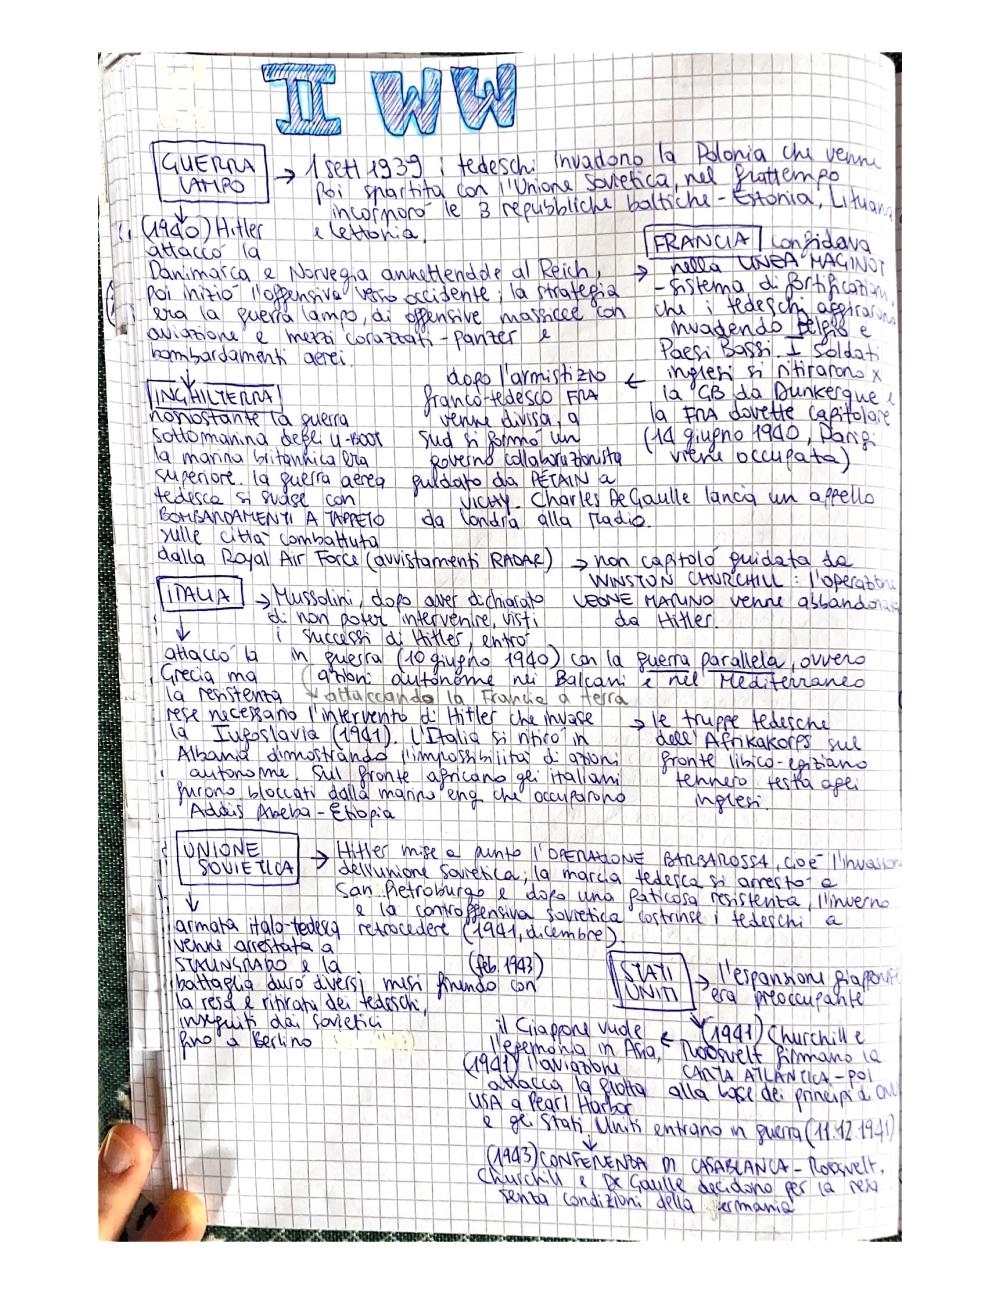 II WW
GUERRA
LAMPO
→ 1 sett 1939 i tedeschi invadono la Polonia che venne
poi spartita con l'Unione Sovietica, nel frattempo
incorporò le 3 repubbliche baltiche - Estonia, Lituania
e Lettonia.
(1940) Hitler
attaccò la
Danimarca e Norvegia annettendole al Reich,
poi iniziò l'offensiva verso occidente; la strategia
era la guerra lampo, di offensive massicce con
aviazione e mezzi corazzati - panzer e
bombardamenti aerei.
FRANCIA confidava
→ nella LINEA MAGINOT
- sistema di fortificazioni
che i tedeschi aggirarono
invadendo Belgio e
Paesi Bassi. I soldati
inglesi si ritirarono x
la GB da Dunkerque e
la FRA dovette capitolare
(14 giugno 1940, Parigi
viene occupata)
dopo l'armistizio ←
franco-tedesco FRA
venne divisa, a
sud si formò un
governo collaborazionista
guidato da PÉTAIN a
VICHY. Charles De Gaulle lancia un appello
da Londra alla radio.
INGHILTERRA
nonostante la guerra
sottomarina degli U-BOOT
la marina britannica era
superiore. la guerra aerea
tedesca si svolse con
BOMBARDAMENTI A TAPPETO
sulle città combattuta
dalla Royal Air Force (avvistamenti RADAR)
→ non capitolò guidata da
WINSTON CHURCHILL: l'operazione
LEONE MARINO venne abbandonata
da Hitler.
ITALIA
→ Mussolini, dopo aver dichiarato
di non poter intervenire, visti
i successi di Hitler, entrò
in guerra (10 giugno 1940) con la guerra parallela, ovvero
azioni autonome nei Balcani e nel Mediterraneo
attaccando la Francia a terra
attaccò la
Grecia ma
la resistenza
rese necessario l'intervento di Hitler che invase
la Iugoslavia (1941). L'Italia si ritirò in
Albania dimostrando l'impossibilità di azioni
autonome. Sul fronte africano gli italiani
furono bloccati dalla marina eng che occuparono
Addis Abeba - Etiopia
→ le truppe tedesche
dell'Afrikakorps sul
fronte libico-egiziano
tennero testa agli
inglesi.
UNIONE
SOVIETICA
→ Hitler mise a punto l'OPERAZIONE BARBAROSSA, cioè l'invasione
dell'unione sovietica; la marcia tedesca si arrestò a
San Pietroburgo e dopo una faticosa resistenza, l'inverno
e la controffensiva sovietica costrinse i tedeschi a
retrocedere (1941, dicembre).
armata italo-tedesca
venne arrestata a
STALINGRADO e la (feb. 1943)
battaglia durò diversi mesi finendo con
la resa e ritirata dei tedeschi,
inseguiti dai sovietici
fino a Berlino
STATI
UNITI
→ l'espansione giapponese
era preoccupante
(1941) Churchill e
Roosvelt firmano la
CARTA ATLANTICA - poi
alla base dei principi di ONU
il Giappone vuole ←
l'egemonia in Asia,
(1941) l'aviazione
attacca la flotta
USA a Pearl Harbor
e gli Stati Uniti entrano in guerra (11.12.1941)
(1943) CONFERENZA DI CASABLANCA - Roosvelt,
Churchill e De Gaulle decidono per la resa
senza condizioni della Germania